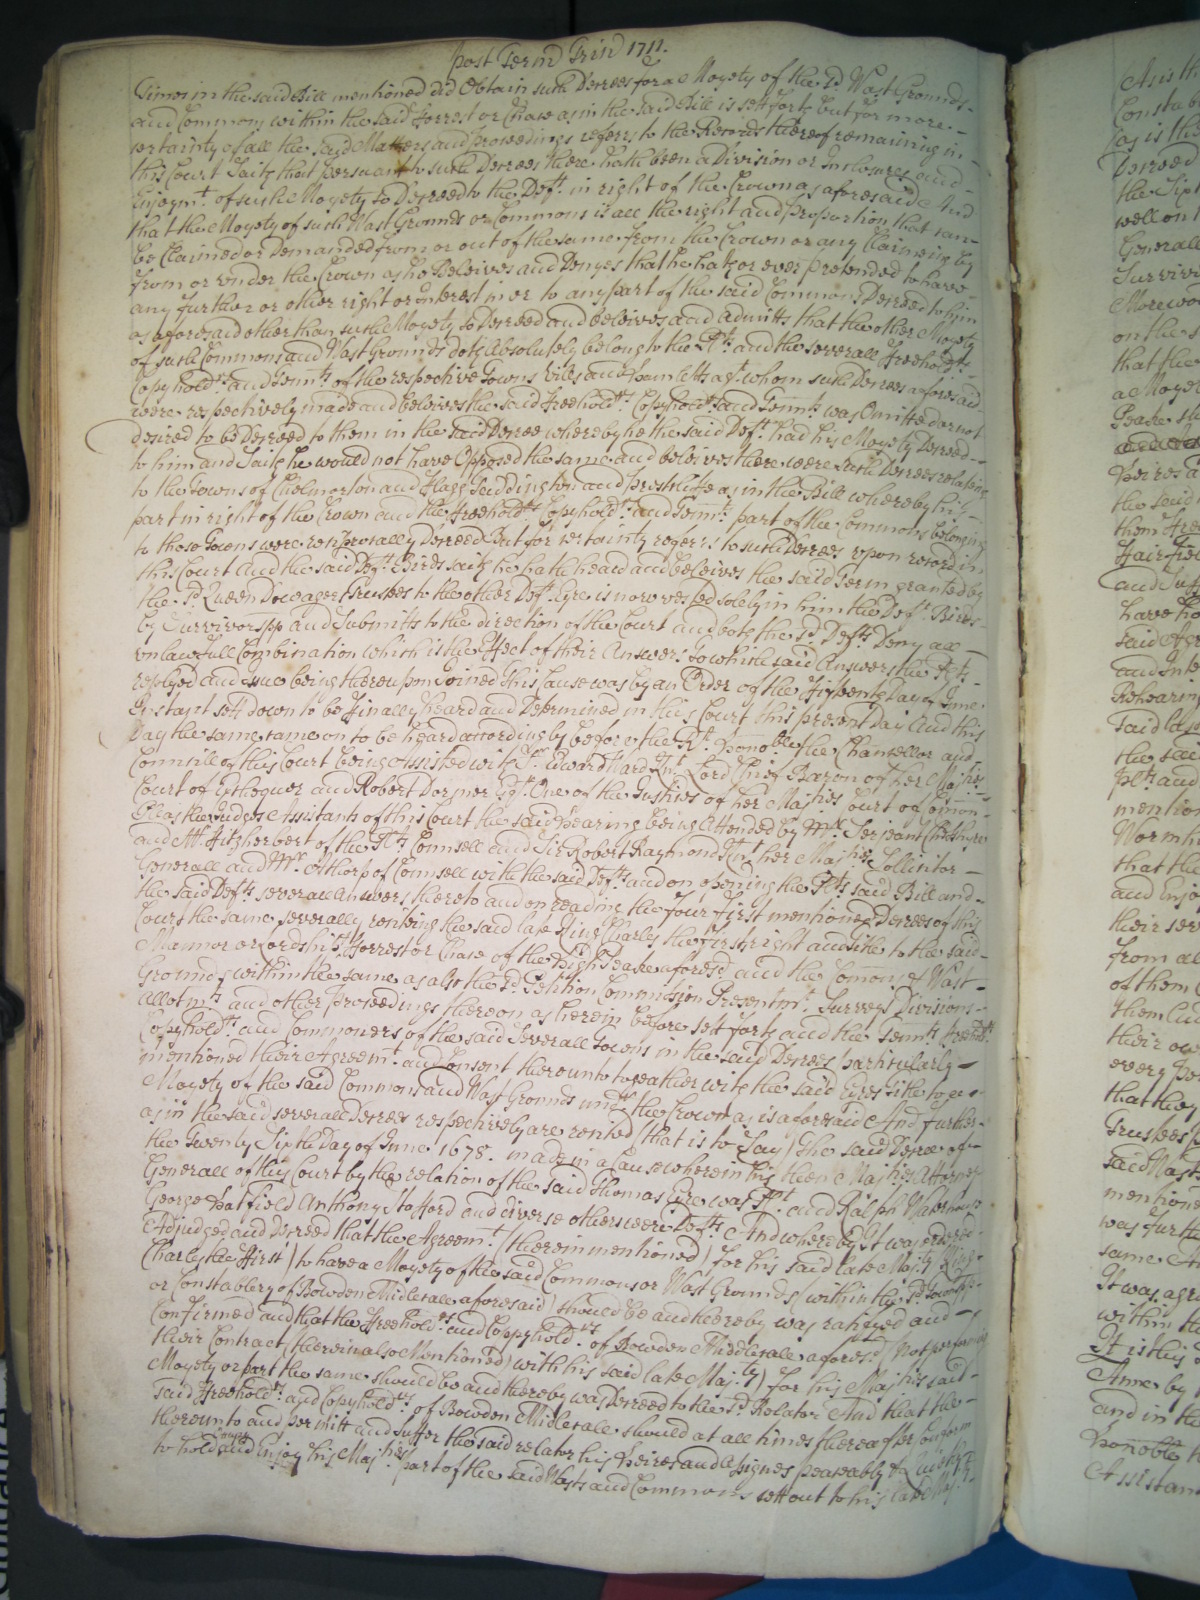 post Term Trin 1711.
Times in the said Bill mentioned did Obtain such Decrees for a Moyety of the sd. Wast Grounds
and Commons within the said Forrest or Chase as in the said Bill is sett forth but for more
certainty of all the said Matters and Proceedings referrs to the Records thereof remaining in
this Court Saith that persuant to such Decrees there hath been a Division or Inclosures and
Enjoymt. of such Moyety so Decreed to the Deft. in right of the Crown as aforesaid And
that the Moyety of such Wast Grounds or Commons is all the right and proportion that can
be Claimed or Demanded from or out of the same from the Crown or any Claiming by
from or under the Crown as he Beleives and Denyes that he hath or ever pretended to have
any further or other right or Interest in or to any part of the said Commons Decreed to him
as aforesaid other than such Moyety so Decreed and beleives and admitts that the other Moyety
of such Commons and Wast Grounds doth Absolutely belong to the Plts. and the severall Freeholdrs.
Copyholdrs. and Tennts. of the respective Towns Viles and Hamletts agt. whom such Decrees aforesaid
were respectively made and beleives the said Freeholdrs. Copyholdrs. and Tennts. was Omitted or not
desired to be Decreed to them in the said Decree whereby he the said Deft. had his Moyety Decreed
to him and Saith he would not have Opposed the same and beleives there were such Decrees relating
to the Towns of Chelmorton and Flagg Taddington and Priestcliffe as in the Bill whereby his
part in right of the Crown and the Freeholdrs. Copyholdrs. and Tennts. part of the Commons belonging
to those Towns were reciprocally Decreed But for certainty referrs to such Decrees upon record in
this Court And the said Deft. Birds saith he hath heard and beleives the said Term granted by
the sd. Queen Dowagers Trustees to the other Deft. Eyre is now vested solely in him the Deft. Birds
by Survivorspp and Submitts to the direction of the Court and both the sd. Defts. Deny all
unlawfull Combination which is the Effect of their Answers To which said Answers the Plts.
replyed and Issue being thereupon Joined This Cause was by an Order of the Fifteenth day of June
Instant sett down to be Finally heard and Determined in this Court this present Day And this
Day the same came on to be heard accordingly before the Rt. Honoble the Chancellor and
Councill of this Court being Assisted with Sr. Edward Ward Knt. Lord Chief Baron of her Majties
Court of Exchequer and Robert Dormer Esqr. One of the Justices of her Majties Court of Comon
Pleas the Judges Assistants of this Court the said Hearing being Attended by Mr. Serjeant Cheshyre
and Mr. Fitzherbert of the Plts Councell and Sir Robert Raymond Knt. her Majties Sollicitor
Generall and Mr. Althorp of Councell with the said Defts. and on opening the Plts said Bill and
the said Defts. severall Answers thereto and on reading the Four First mentioned Decrees of this
Court the same severally reciting the said late King Charles the First right and title to the said
Mannor or Lordship Forrest or Chase of the High Peake aforesd. and the Comons & Wast
Grounds within the same as also the sd. Petition Commission Presentmt. Surveys Divisions
Allotmts. and other Proceedings thereon as herein before sett forth and the Tennts. Freeholdrs.
Copyholdrs. and Commoners of the said Severall Towns in the said Decrees particularly
mentioned their Agreemt. and Consent thereunto together with the said Eyres title to ye
Moyety of the said Commons and Wast Grounds under the Crown as is aforesaid And further
as in the said severall Decrees respectively are recited (that is to Say) The said Decree of
the Twenty Sixth Day of June 1678. made in a Cause wherein his then Majties Attorney
Generall of this Court by the relation of the said Thomas Eyre was Plt. and Ralph Waterhouse
George Hatfield Anthony Stafford and diverse others were Defts. And whereby It was Ordered
Adjudged and Decreed that the Agreemt. (therein mentioned) for his said late Majty King
Charles the First) to have a Moyety of the said Commons or Wast Grounds (within the sd. Townspp
or Constablery of Bowden Middlecale aforesaid) should be and thereby was ratifyed and
Confirmed and that the Freeholdrs. and Coppyholdrs. of Bowden Middlecale aforesd. (Not performing
their Contract (therein also Mentioned) with his said late Majty) for his Majties said
Moyety or part the same should be and thereby was Decreed to the sd. Relator And that the
said Freeholdrs. and Copyholdrs. of Bowden Middlecale should at all times thereafter Conform
thereunto and permitt and suffer the said relator his Heires and Assignes peaceably & Quietly
to hold and Enjoy his Majties part of the said Wasts and Commons sett out to his late Majty